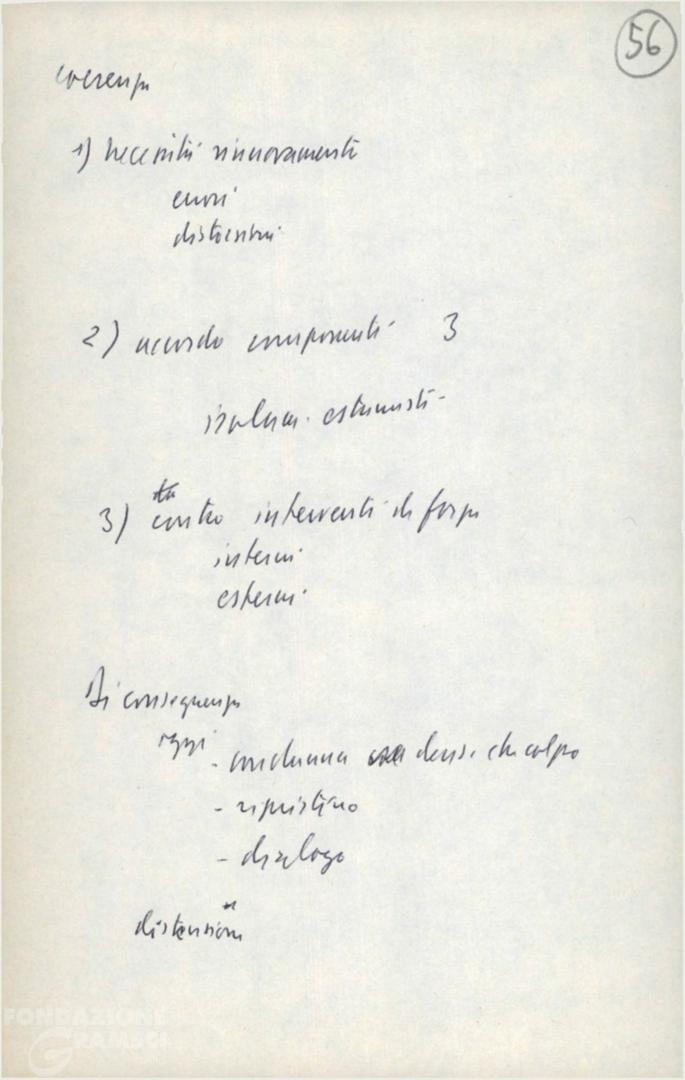 56
coerenza
1) necessità rinnovamento
errori
distorsioni
2) accordo componenti 3
isolam. estremisti
3) contro interventi di forza
interni
esterni
Di conseguenza
oggi - condanna che colpo
- ripristino
- dialogo
distensione
FONDAZIONE
GRAMSCI